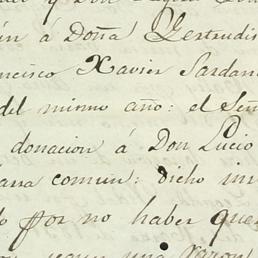 y Don
á Doña Gertrudis
ncisco Xavier Sardan
del mismo año: el Señ
donacion á Don Lucio
ana comun: dicho in
por no haber que
una varon